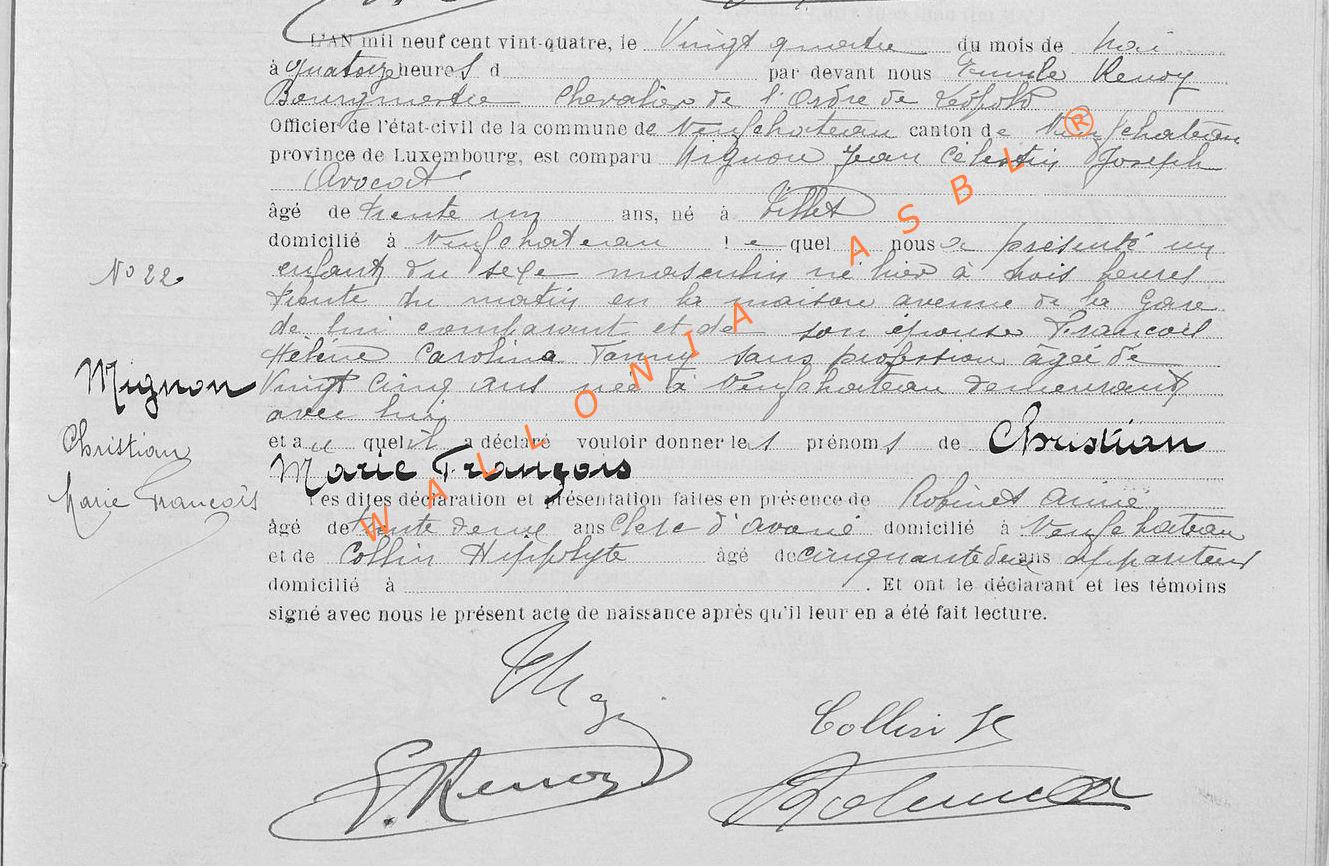 L'AN mil neuf cent vint-quatre, le Vingt quatre du mois de Mai
à quatorze heures d par devant nous Emile Renoy
Bourgmestre Chevalier de l'Ordre de Léopold
Officier de l'état-civil de la commune de Neufchateau canton de Neufchateau
province de Luxembourg, est comparu Mignon Jean Célestin Joseph
Avocat
âgé de trente un ans, né à Tillet
domicilié à Neufchateau le quel nous a présenté un
enfant du sexe masculin né hier à trois heures
trente du matin en la maison avenue de la Gare
de lui comparant et de son épouse François
Hélène Carolina Fanny sans profession âgée de
Vingt cinq ans née à Neufchateau demeurant
avec lui
No 22.
Mignon
Christian
Marie François
et au quel il a déclaré vouloir donner les prénoms de Christian
Marie François
Les dites déclaration et présentation faites en présence de Robinet Aimé
âgé de trente deux ans Clerc d'avoué domicilié à Neufchateau
et de Collin Hippolyte âgé de cinquante deux ans appariteur
domicilié à . Et ont le déclarant et les témoins
signé avec nous le présent acte de naissance après qu'il leur en a été fait lecture.
Collin H
E. Renoy
WALLONIA ASBL ®